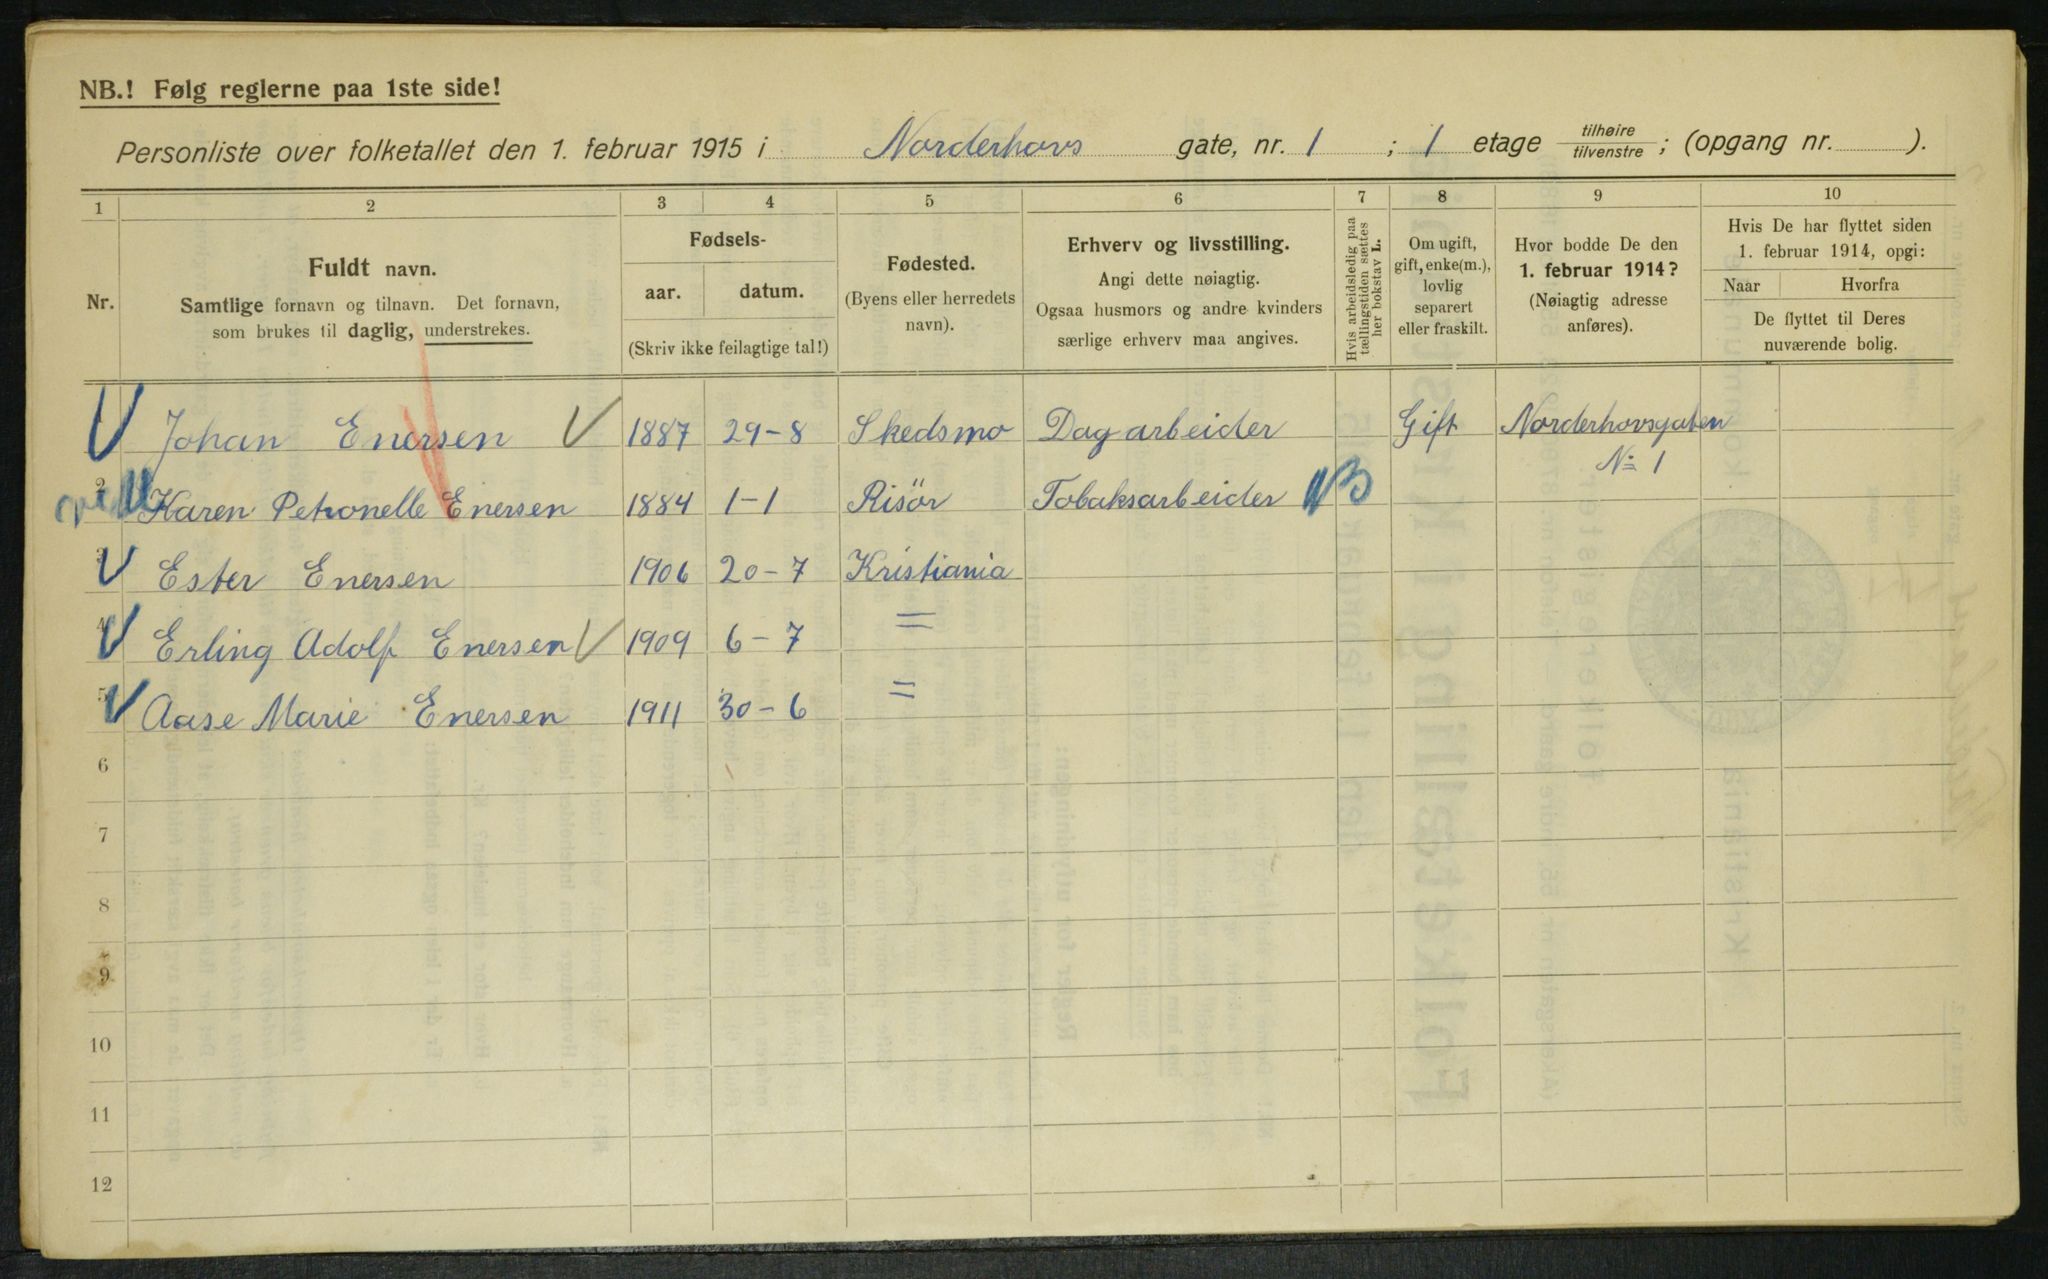 NB.! Følg reglerne paa 1ste side!
Personliste over folketallet den 1. februar 1915 i Norderhovs gate, nr. 1 ; 1 etage tilhøire / tilvenstre ; (opgang nr. ).
1 2 3 4 5 6 7 8 9 10
Nr.
Fuldt navn.
Samtlige fornavn og tilnavn. Det fornavn,
som brukes til daglig, understrekes.
Fødsels-
aar. datum.
(Skriv ikke feilagtige tal!)
Fødested.
(Byens eller herredets
navn).
Erhverv og livsstilling.
Angi dette nøiagtig.
Ogsaa husmors og andre kvinders
særlige erhverv maa angives.
Hvis arbeidsledig paa
tællingstiden sættes
her bokstav L.
Om ugift,
gift, enke(m.),
lovlig
separert
eller fraskilt.
Hvor bodde De den
1. februar 1914?
(Nøiagtig adresse
anføres).
Hvis De har flyttet siden
1. februar 1914, opgi:
Naar Hvorfra
De flyttet til Deres
nuværende bolig.
Johan Enersen 1887 29-8 Skedsmo Dagarbeider Gift Norderhovsgaten
No 1
2 Karen Petronelle Enersen 1884 1-1 Risör Tobaksarbeider
3 Ester Enersen 1906 20-7 Kristiania
4 Erling Adolf Enersen 1909 6-7 =
5 Aase Marie Enersen 1911 30-6 =
6
7
8
9
10
11
12